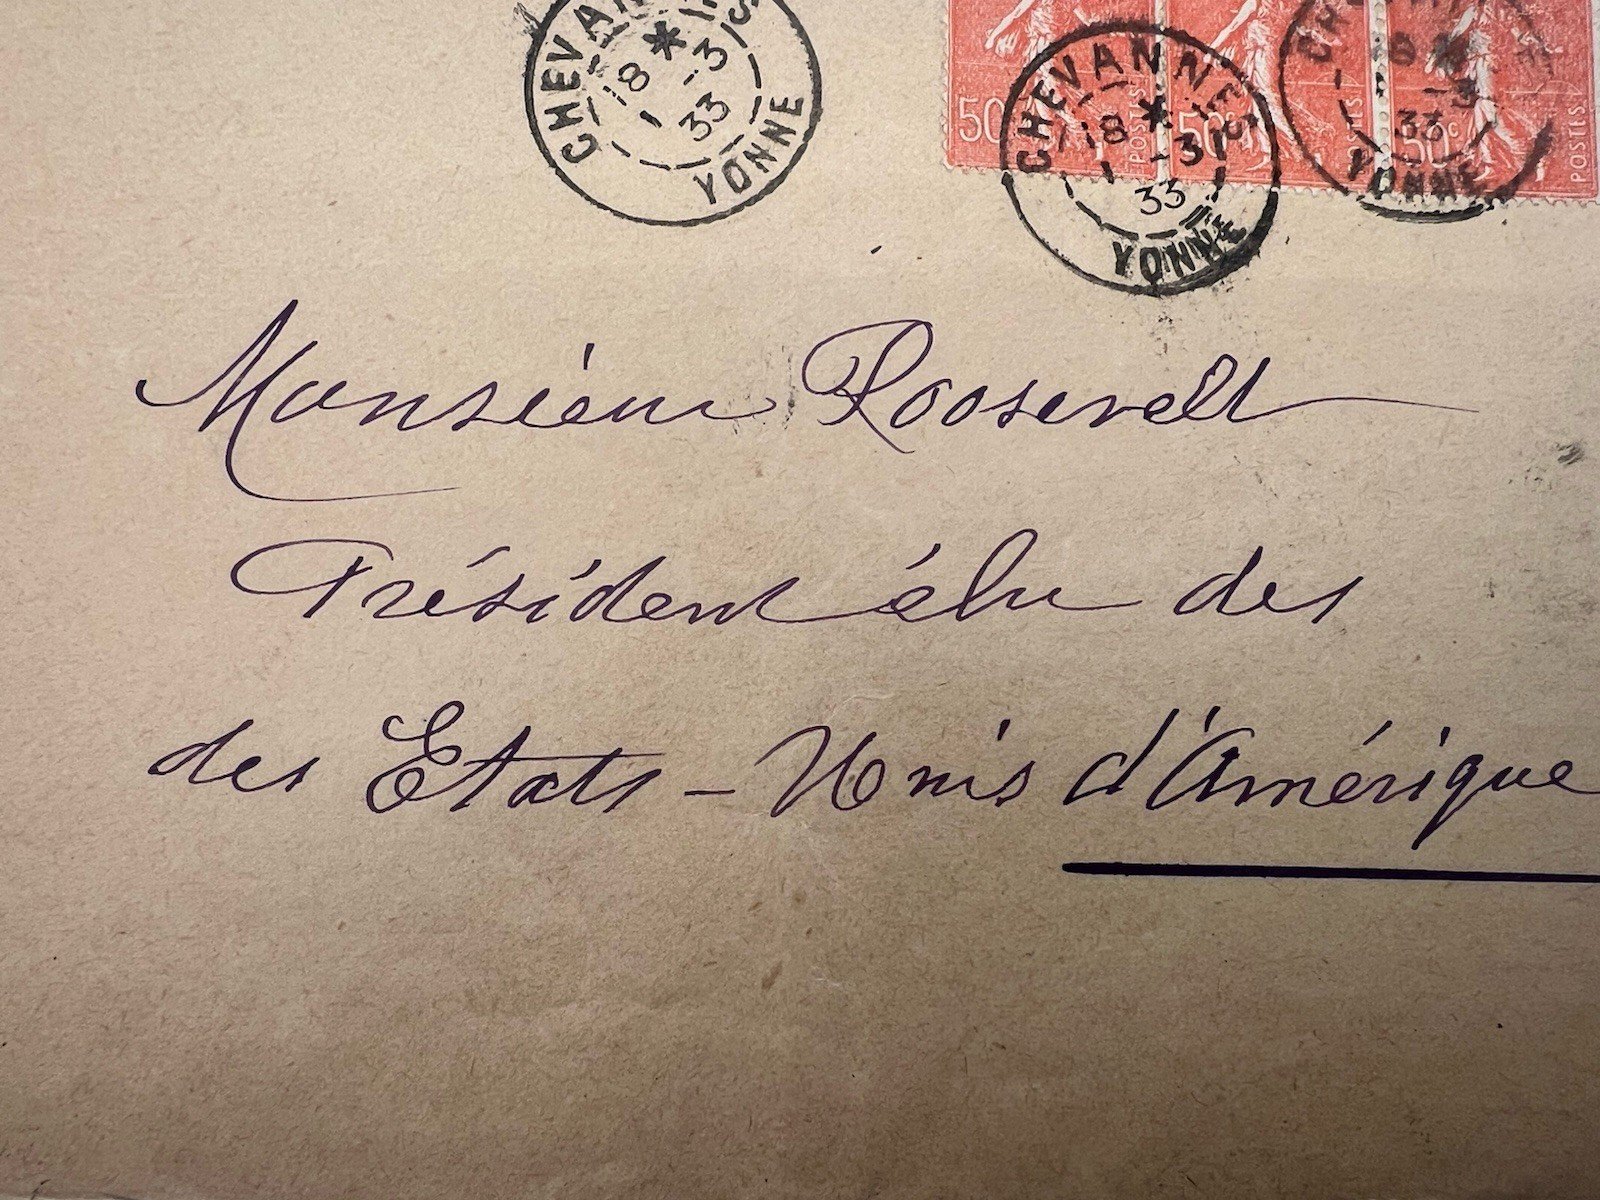 CHEVANNES
18 * 
1 -3
33
YONNE
50c POSTES
50c POSTES
50c POSTES
CHEVANNES
18 *
1 -3
33
YONNE
18 *
-3
33
YONNE
Monsieur Roosevelt
Président élu des
des Etats-Unis d'Amérique